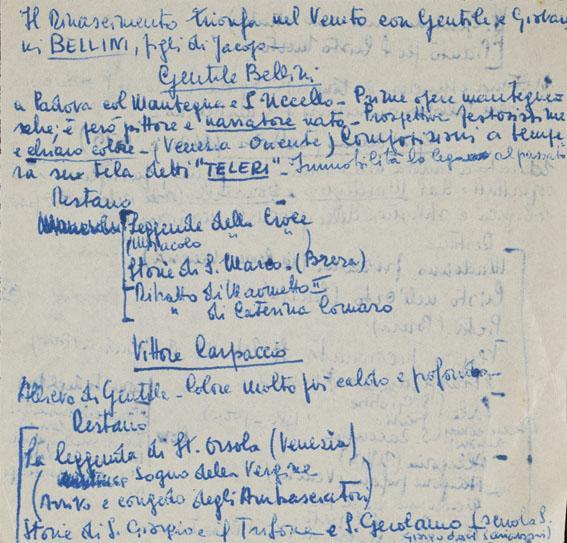 Il Rinascimento trionfa nel Veneto con Gentile e Giovan
ni BELLINI, figli di Jacopo
Gentile Bellini
a Padova col Mantegna e P. Uccello - Prime opere mantegne
sche, è però pittore e narratore nato - Prospettive festosissime
e chiaro colore - (Venezia Oriente) Composizioni a tempe
ra su tela detti "TELERI" - Immobilità lo lega al passato
Restano
Leggende della Croce
Miracolo " "
Storie di S. Marco - (Brera)
Ritratto di Maometto II
" di Caterina Cornaro
Vittore Carpaccio
Allievo di Gentile - Colore molto più caldo e profondo -
Restano
La leggenda di St. Orsola (Venezia)
Sogno della Vergine
(Arrivo e congedo degli Ambasciatori)
Storie di S. Giorgio e S. Trifone e S. Gerolamo (scuola S.
Giorgio degli Schiavoni)